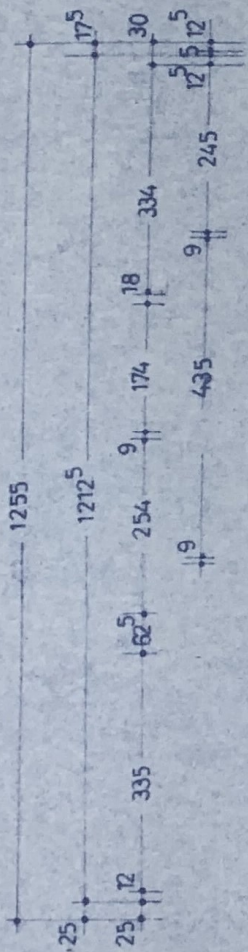 1255
25 1212⁵ 17⁵
25 12 335 62⁵ 254 9 174 18 334 30
9 435 9 245 12⁵ 5 12⁵